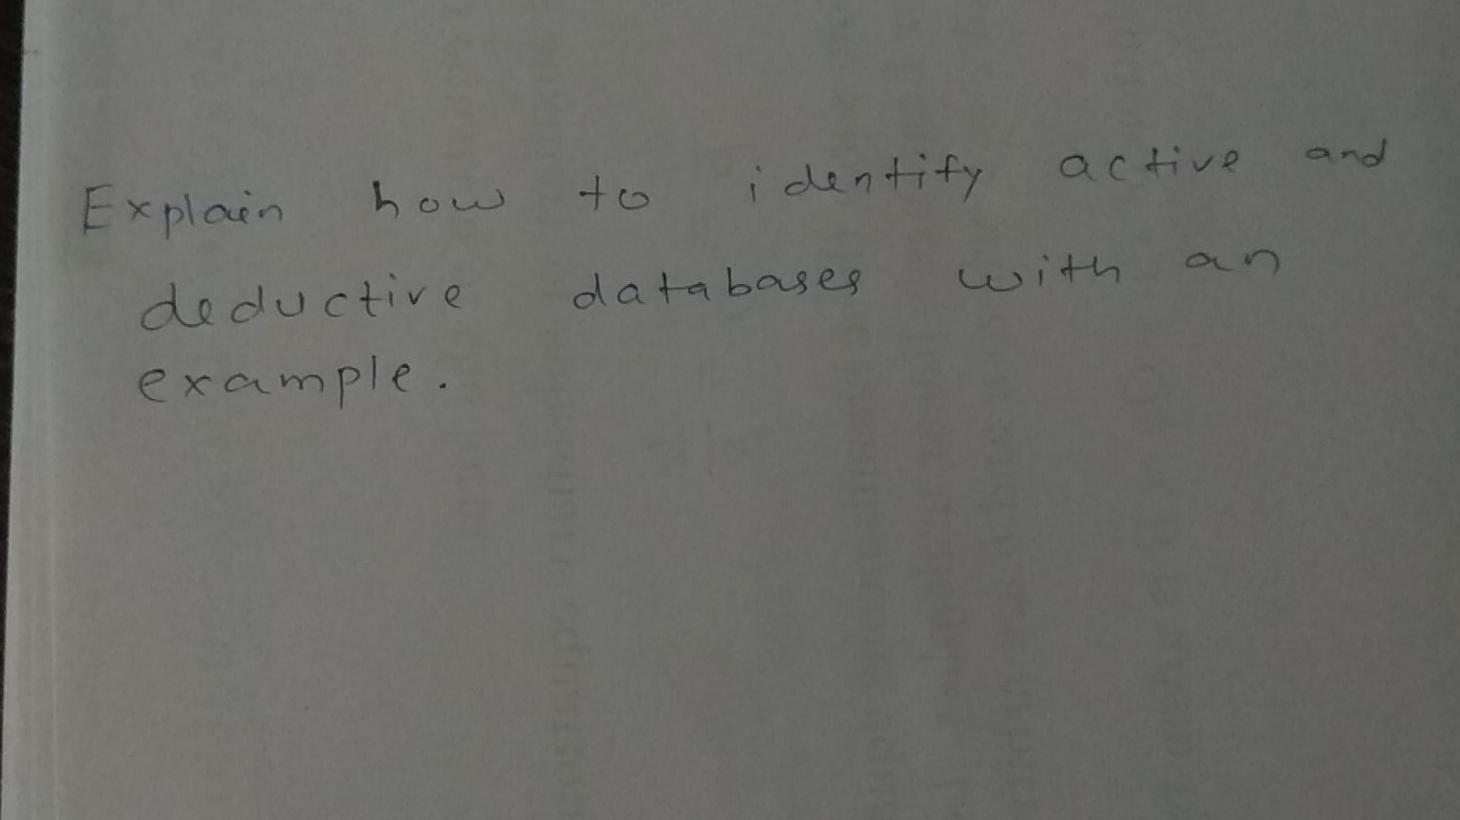 Explain how to identify active and
deductive databases with an
example.